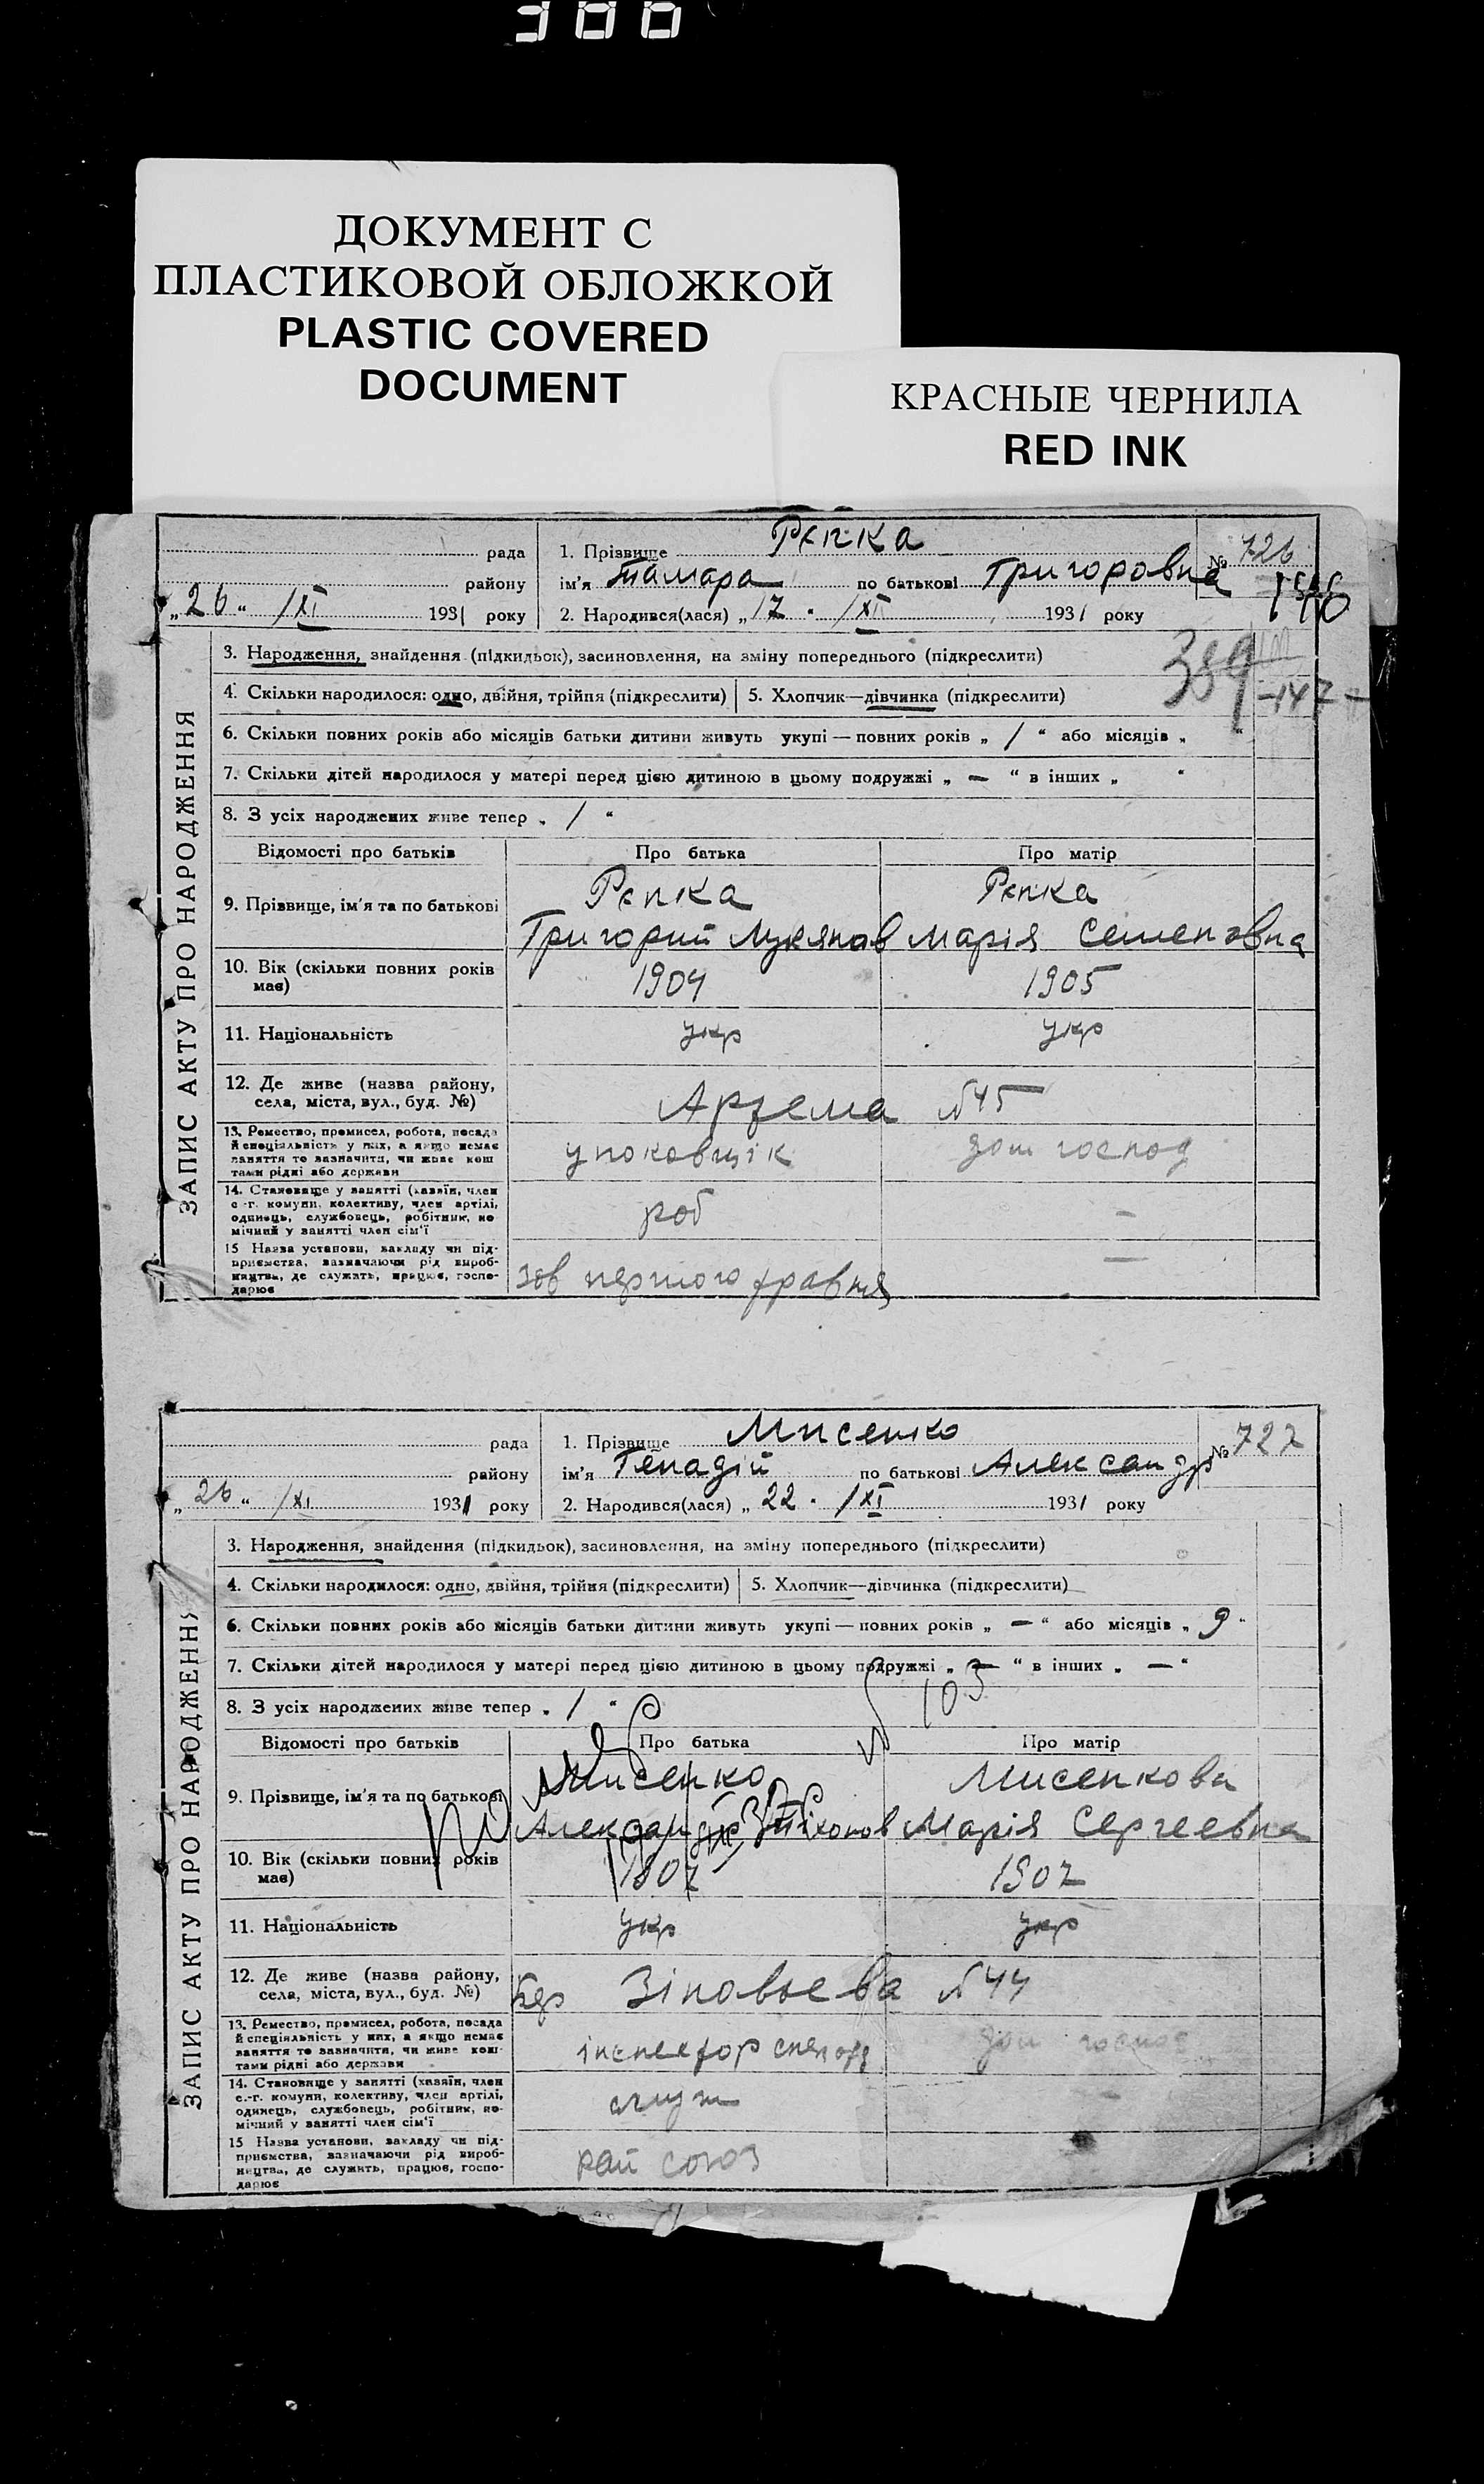 300
ДОКУМЕНТ С
ПЛАСТИКОВОЙ ОБЛОЖКОЙ
PLASTIC COVERED
DOCUMENT
КРАСНЫЕ ЧЕРНИЛА
RED INK
рада
району
„26“ /XI 1931 року
1. Прізвище Рєпка
ім'я Тамара по батькові Григоровна
2. Народився(лася) „17 /XI 1931 року
№ 726
389
-147-
ЗАПИС АКТУ ПРО НАРОДЖЕННЯ
3. Народження, знайдення (підкидьок), засиновлення, на зміну попереднього (підкреслити)
4. Скільки народилося: одно, двійня, трійня (підкреслити) 5. Хлопчик—дівчинка (підкреслити)
6. Скільки повних років або місяців батьки дитини живуть укупі — повних років „ / “ або місяців „ “
7. Скільки дітей народилося у матері перед цією дитиною в цьому подружжі „ — “ в інших „ “
8. З усіх народжених живе тепер „ / “
Відомості про батьків Про батька Про матір
9. Прізвище, ім'я та по батькові Рєпка Рєпка
Григорий Лукянов Марія Семеновна
10. Вік (скільки повних років має) 1904 1905
11. Національність укр укр
12. Де живе (назва району, села, міста, вул., буд. №) Артема №45
13. Ремество, промисел, робота, посада й спеціяльність у них, а якщо немає заняття то зазначити, чи живе коштами рідні або держави упоковщік дом господ
14. Становище у занятті (хазяїн, член с.-г. комуни, колективу, член артілі, одинець, службовець, робітник, помічний у занятті член сім'ї роб —
15 Назва установи, закладу чи підприємства, зазначаючи рід виробництва, де служить, працює, господарює зав першого травня —
рада
району
„26“ /XI 1931 року
1. Прізвище Мисенко
ім'я Генадій по батькові Александр
2. Народився(лася) „22 /XI 1931 року
№ 727
ЗАПИС АКТУ ПРО НАРОДЖЕННЯ
3. Народження, знайдення (підкидьок), засиновлення, на зміну попереднього (підкреслити)
4. Скільки народилося: одно, двійня, трійня (підкреслити) 5. Хлопчик—дівчинка (підкреслити)
6. Скільки повних років або місяців батьки дитини живуть укупі — повних років „ — “ або місяців „ 9 “
7. Скільки дітей народилося у матері перед цією дитиною в цьому подружжі „ — “ в інших „ — “
8. З усіх народжених живе тепер „ / “
Відомості про батьків Про батька Про матір
9. Прізвище, ім'я та по батькові Мисенко Мисенкова
Тіхонов Марія Сергеевна
10. Вік (скільки повних років має) 1907 1907
11. Національність укр укр
12. Де живе (назва району, села, міста, вул., буд. №) Зіновьева №44
13. Ремество, промисел, робота, посада й спеціяльність у них, а якщо немає заняття то зазначити, чи живе коштами рідні або держави інспектор дом господ
14. Становище у занятті (хазяїн, член с.-г. комуни, колективу, член артілі, одинець, службовець, робітник, помічний у занятті член сім'ї служ —
15 Назва установи, закладу чи підприємства, зазначаючи рід виробництва, де служить, працює, господарює рай союз